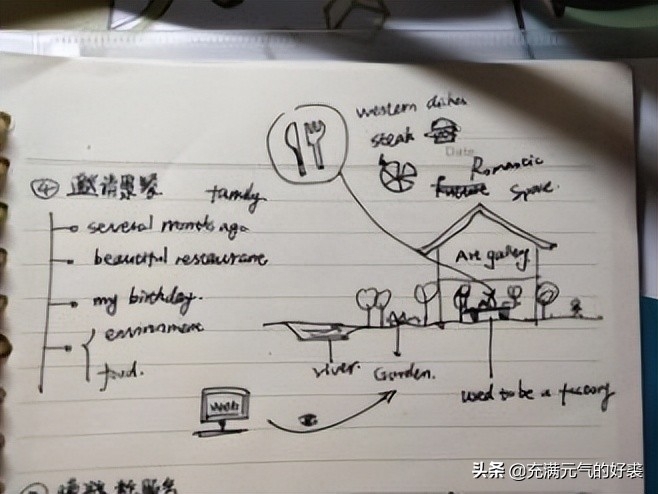 western dishes
steak
Date
Romantic
④ 邀请家餐
family
future space.
several months ago
beautiful restaurant
Art gallery
my birthday.
environment
food.
river.
Garden.
used to be a factory
Web
头条 @充满元气的好裘